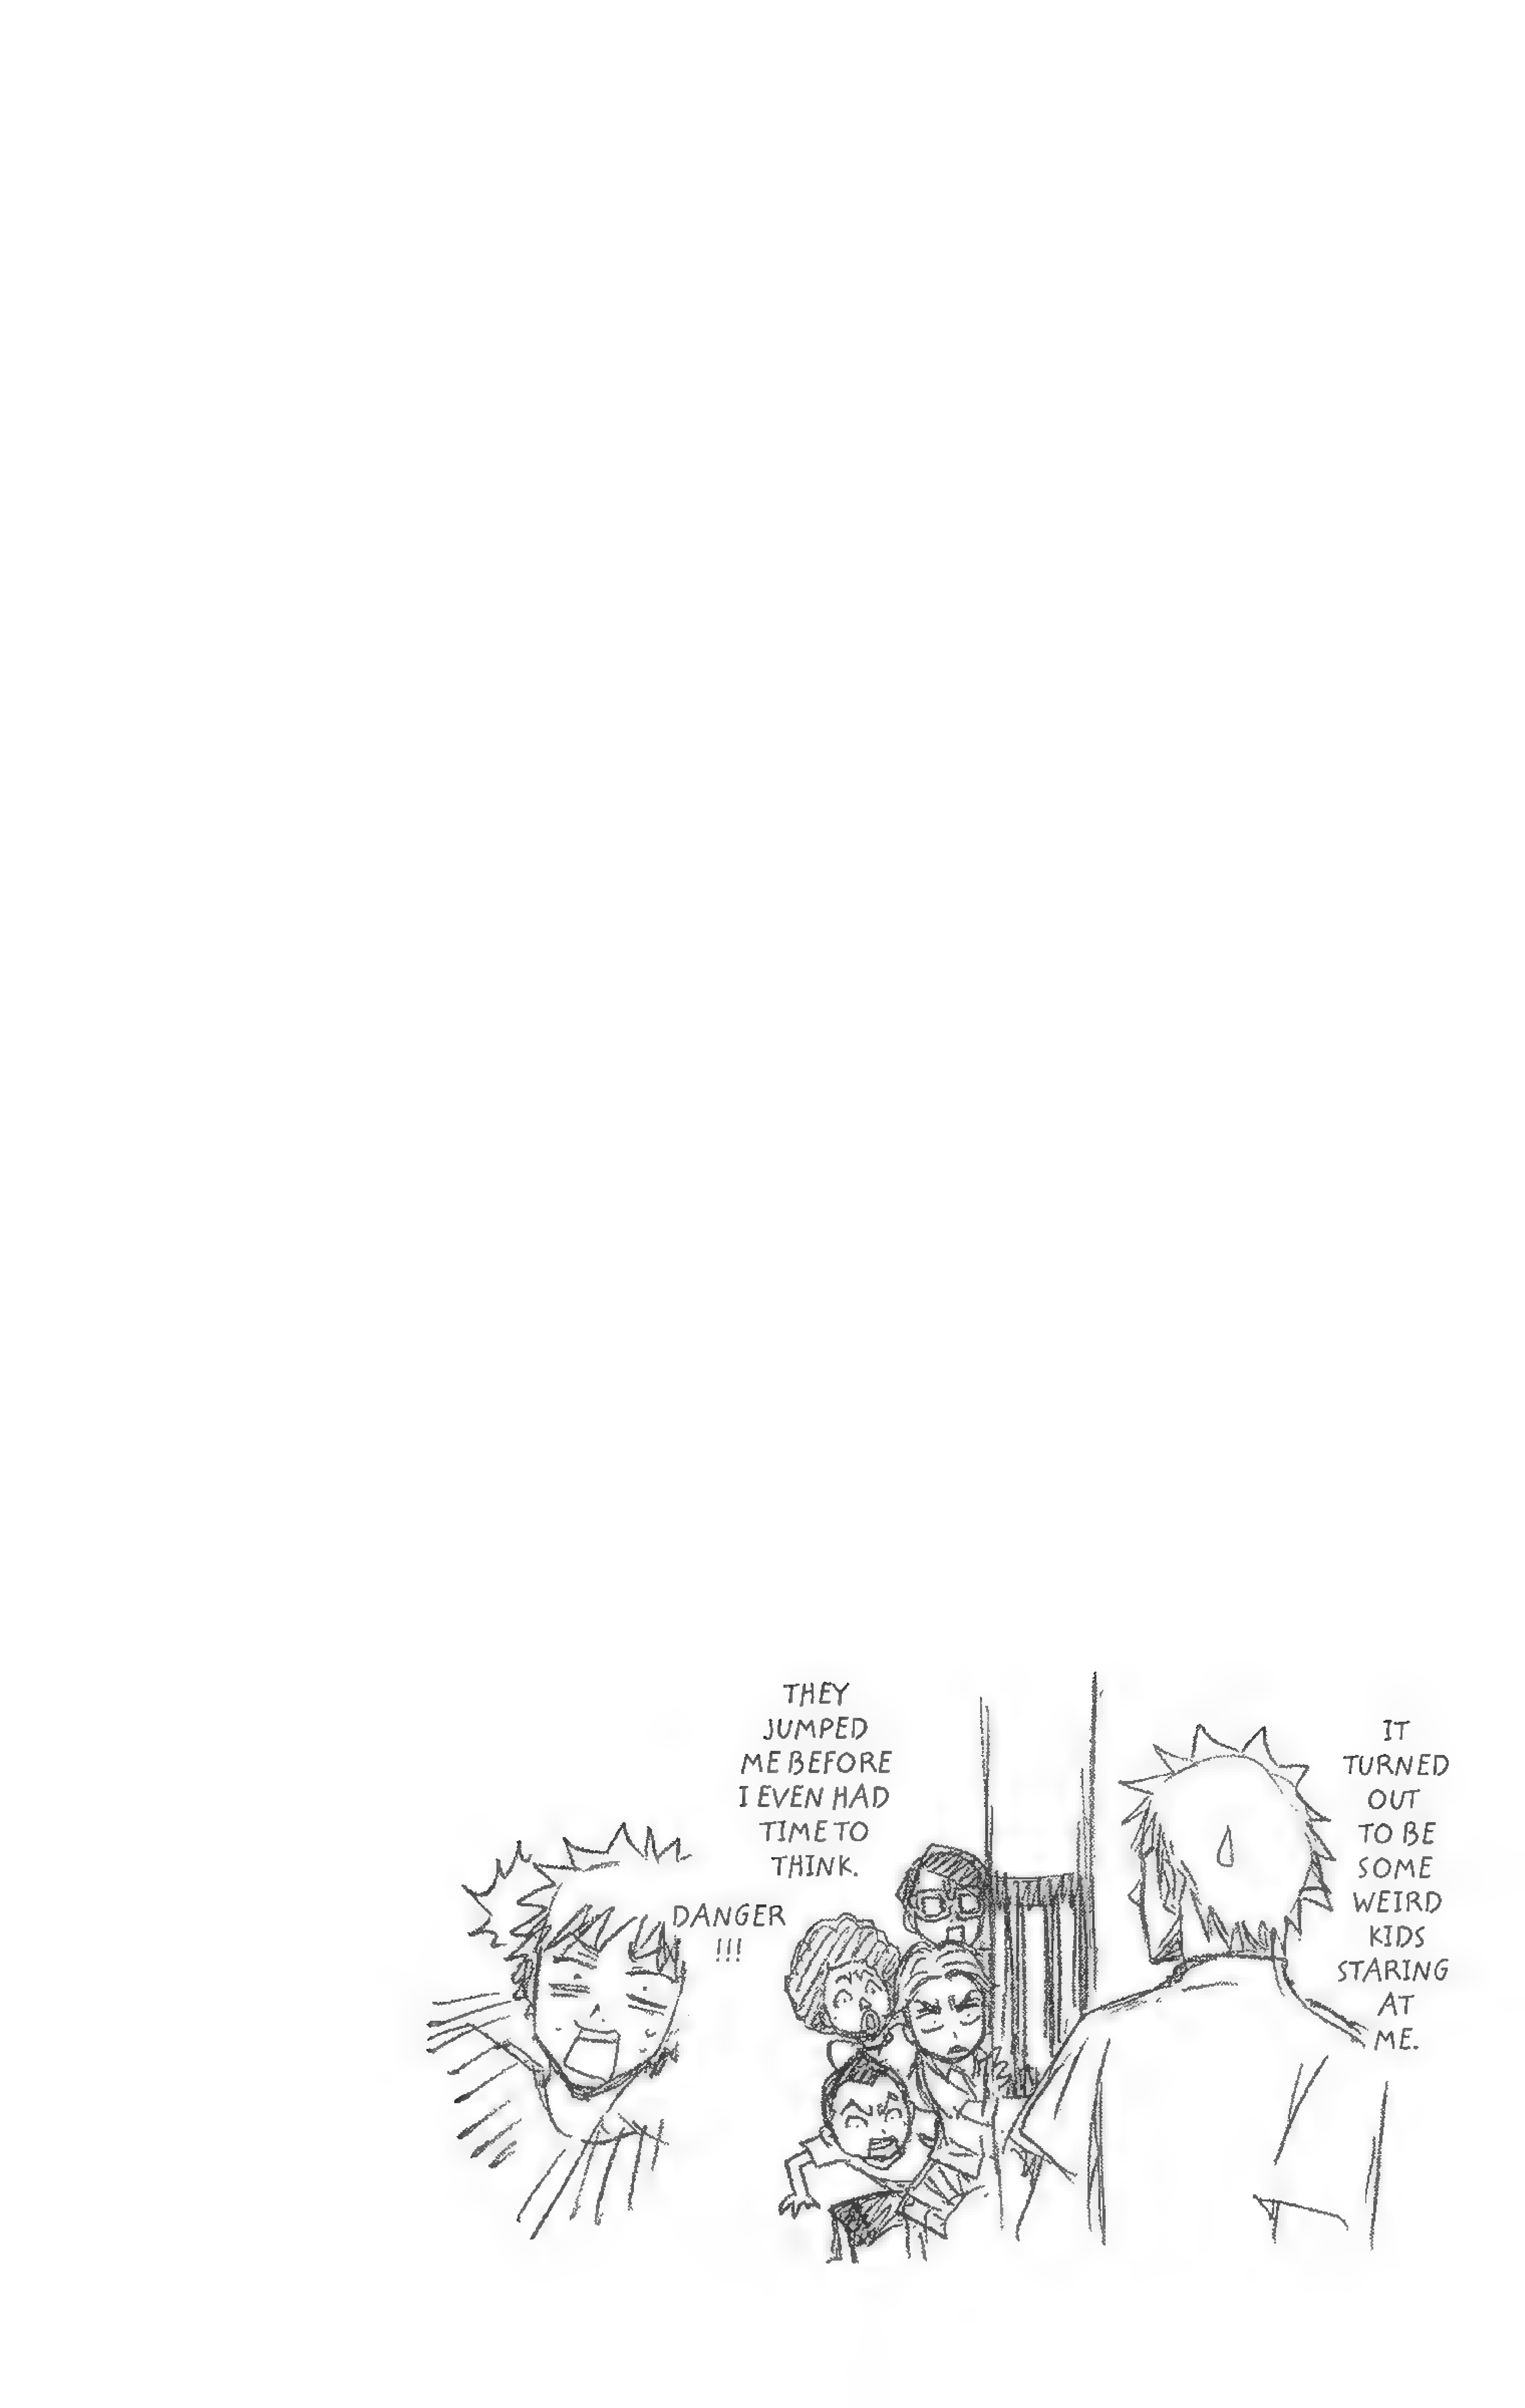 IT
TURNED
OUT
TO BE
SOME
WEIRD
KIDS
STARING
AT
ME.
THEY
JUMPED
ME BEFORE
I EVEN HAD
TIME TO
THINK.
DANGER
!!!